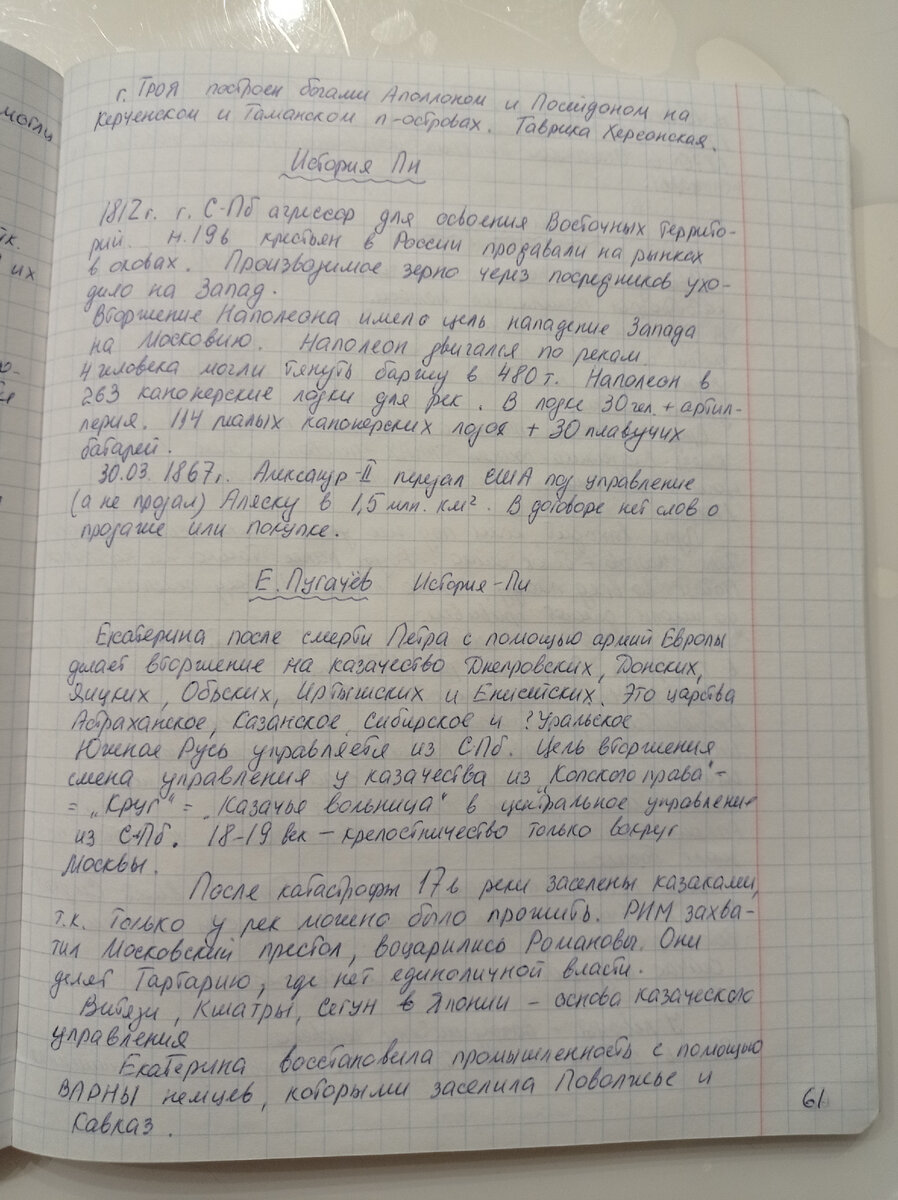 могли
г. Троя построен богами Аполлоном и Посейдоном на
Керченском и Таманском п-островах. Таврика Херсонская.
История Пи
1812г. г. С-Пб агрессор для освоения Восточных террито-
рий. н.19в крестьян в России продавали на рынках
в оковах. Производимое зерно через посредников ухо-
дило на Запад.
Вторжение Наполеона имело цель нападение Запада
на Московию. Наполеон двигался по рекам
4 человека могли тянуть баржу в 480т. Наполеон в
263 канонерские лодки для рек. В лодке 30чел. + артил-
лерия. 114 малых канонерских лодок + 30 плавучих
батарей.
30.03.1867г. Александр-II передал США под управление
(а не продал) Аляску в 1,5 млн. км². В договоре нет слов о
продаже или покупке.
Е. Пугачёв История-Пи
Екатерина после смерти Петра с помощью армий Европы
делает вторжение на казачество Днепровских, Донских,
Яицких, Обьских, Иртышских и Енисейских. Это царства
Астраханское, Казанское, Сибирское и ?Уральское
Южная Русь управляется из С-Пб. Цель вторжения
смена управления у казачества из „Копского права" -
= „Круг" = „Казачья вольница" в центральное управление
из С-Пб. 18-19 век – крепостничество только вокруг
Москвы.
После катастрофы 17в реки заселены казаками,
т.к. только у рек можно было прожить. РИМ захва-
тил Московский престол, воцарились Романовы. Они
делят Тартарию, где нет единоличной власти.
Витязи, Кшатры, Сегун в Японии – основа казаческого
управления
Екатерина восстановила промышленность с помощью
ВАРНЫ немцев, которыми заселила Поволжье и
Кавказ.
61